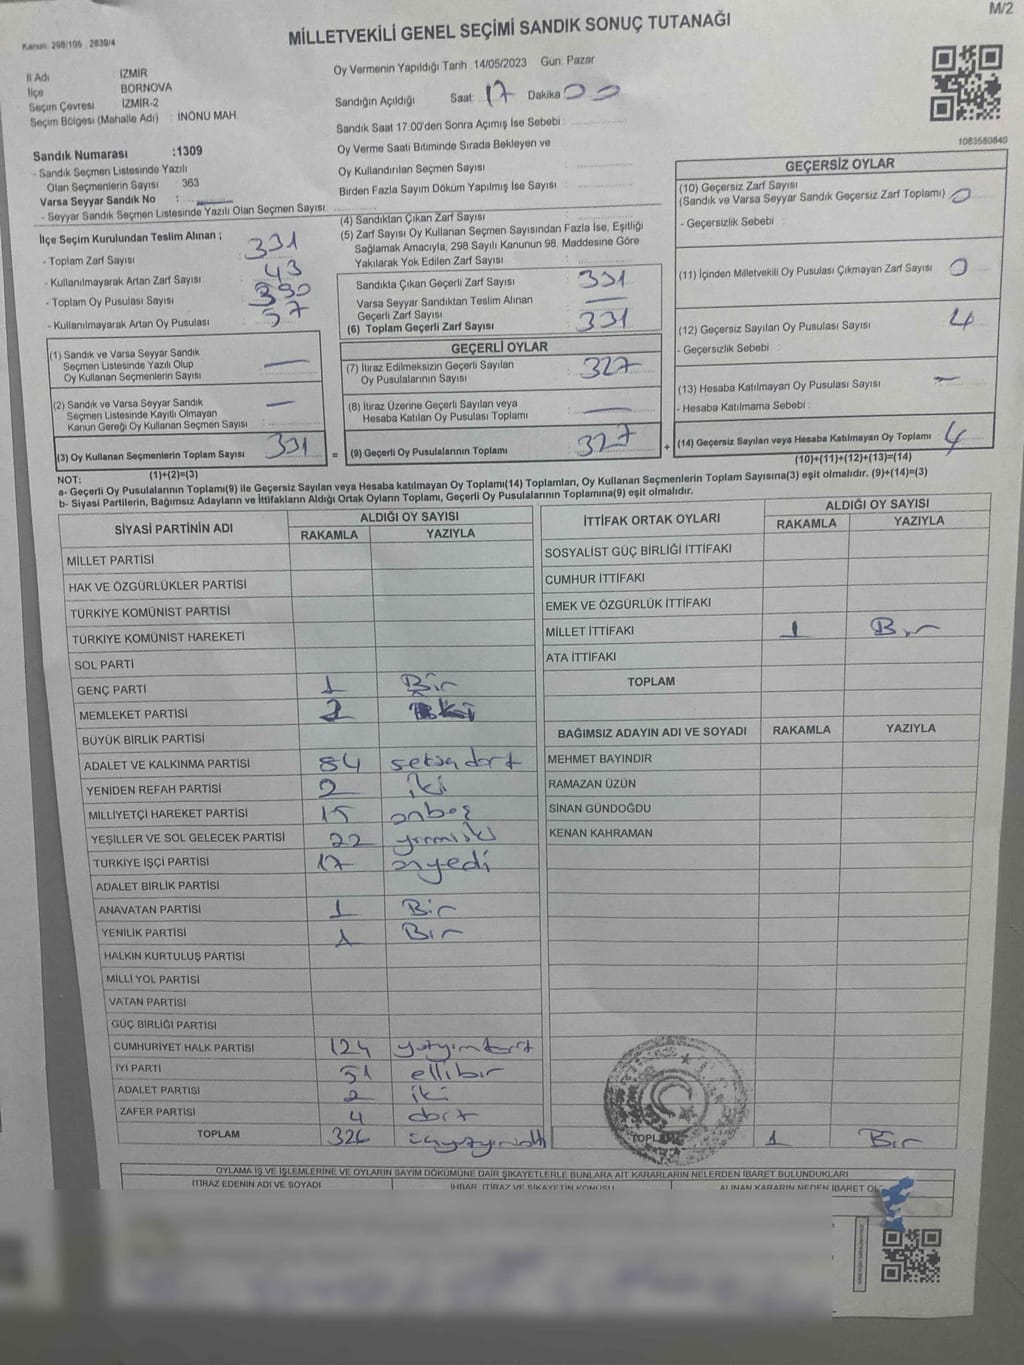 M/2
Kanun: 298/105 2839/4
MİLLETVEKİLİ GENEL SEÇİMİ SANDIK SONUÇ TUTANAĞI
İl Adı İZMİR
İlçe BORNOVA
Seçim Çevresi İZMİR-2
Seçim Bölgesi (Mahalle Adı) : İNÖNÜ MAH.
Oy Vermenin Yapıldığı Tarih :14/05/2023 Gün: Pazar
Sandığın Açıldığı Saat: 17 Dakika 00
Sandık Saat 17:00'den Sonra Açımış İse Sebebi :
Oy Verme Saati Bitiminde Sırada Bekleyen ve
Oy Kullandırılan Seçmen Sayısı :
Birden Fazla Sayım Döküm Yapılmış İse Sayısı :
1083580840
Sandık Numarası :1309
- Sandık Seçmen Listesinde Yazılı
Olan Seçmenlerin Sayısı : 363
Varsa Seyyar Sandık No :
- Seyyar Sandık Seçmen Listesinde Yazılı Olan Seçmen Sayısı:
İlçe Seçim Kurulundan Teslim Alınan ;
- Toplam Zarf Sayısı : 331
- Kullanılmayarak Artan Zarf Sayısı : 43
- Toplam Oy Pusulası Sayısı :
- Kullanılmayarak Artan Oy Pusulası :
(1) Sandık ve Varsa Seyyar Sandık
Seçmen Listesinde Yazılı Olup
Oy Kullanan Seçmenlerin Sayısı : —
(2) Sandık ve Varsa Seyyar Sandık
Seçmen Listesinde Kayıtlı Olmayan
Kanun Gereği Oy Kullanan Seçmen Sayısı : —
(3) Oy Kullanan Seçmenlerin Toplam Sayısı : 331
(1)+(2)=(3)
(4) Sandıktan Çıkan Zarf Sayısı :
(5) Zarf Sayısı Oy Kullanan Seçmen Sayısından Fazla İse, Eşitliği
Sağlamak Amacıyla, 298 Sayılı Kanunun 98. Maddesine Göre
Yakılarak Yok Edilen Zarf Sayısı :
Sandıkta Çıkan Geçerli Zarf Sayısı : 331
Varsa Seyyar Sandıktan Teslim Alınan
Geçerli Zarf Sayısı : —
(6) Toplam Geçerli Zarf Sayısı : 331
GEÇERLİ OYLAR
(7) İtiraz Edilmeksizin Geçerli Sayılan
Oy Pusulalarının Sayısı : 327
(8) İtiraz Üzerine Geçerli Sayılan veya
Hesaba Katılan Oy Pusulası Toplamı : —
= (9) Geçerli Oy Pusulalarının Toplamı : 327
GEÇERSİZ OYLAR
(10) Geçersiz Zarf Sayısı
(Sandık ve Varsa Seyyar Sandık Geçersiz Zarf Toplamı) : 0
- Geçersizlik Sebebi :
(11) İçinden Milletvekili Oy Pusulası Çıkmayan Zarf Sayısı : 0
(12) Geçersiz Sayılan Oy Pusulası Sayısı : 4
- Geçersizlik Sebebi :
(13) Hesaba Katılmayan Oy Pusulası Sayısı : —
- Hesaba Katılmama Sebebi :
+ (14) Geçersiz Sayılan veya Hesaba Katılmayan Oy Toplamı : 4
(10)+(11)+(12)+(13)=(14)
NOT:
a- Geçerli Oy Pusulalarının Toplamı(9) ile Geçersiz Sayılan veya Hesaba katılmayan Oy Toplamı(14) Toplamları, Oy Kullanan Seçmenlerin Toplam Sayısına(3) eşit olmalıdır. (9)+(14)=(3)
b- Siyasi Partilerin, Bağımsız Adayların ve İttifakların Aldığı Ortak Oyların Toplamı, Geçerli Oy Pusulalarının Toplamına(9) eşit olmalıdır.
SİYASİ PARTİNİN ADI ALDIĞI OY SAYISI
RAKAMLA YAZIYLA
MİLLET PARTİSİ
HAK VE ÖZGÜRLÜKLER PARTİSİ
TÜRKİYE KOMÜNİST PARTİSİ
TÜRKİYE KOMÜNİST HAREKETİ
SOL PARTİ
GENÇ PARTİ 1 Bir
MEMLEKET PARTİSİ 2 iki
BÜYÜK BİRLİK PARTİSİ
ADALET VE KALKINMA PARTİSİ 84 seksendört
YENİDEN REFAH PARTİSİ 2 iki
MİLLİYETÇİ HAREKET PARTİSİ 15 onbeş
YEŞİLLER VE SOL GELECEK PARTİSİ 22 yirmiiki
TÜRKİYE İŞÇİ PARTİSİ 17 onyedi
ADALET BİRLİK PARTİSİ
ANAVATAN PARTİSİ 1 Bir
YENİLİK PARTİSİ 1 Bir
HALKIN KURTULUŞ PARTİSİ
MİLLİ YOL PARTİSİ
VATAN PARTİSİ
GÜÇ BİRLİĞİ PARTİSİ
CUMHURİYET HALK PARTİSİ 124 yüzyirmidört
İYİ PARTİ 51 ellibir
ADALET PARTİSİ 2 iki
ZAFER PARTİSİ 4 dört
TOPLAM 326 üçyüzyirmialtı
İTTİFAK ORTAK OYLARI ALDIĞI OY SAYISI
RAKAMLA YAZIYLA
SOSYALİST GÜÇ BİRLİĞİ İTTİFAKI
CUMHUR İTTİFAKI
EMEK VE ÖZGÜRLÜK İTTİFAKI
MİLLET İTTİFAKI 1 Bir
ATA İTTİFAKI
TOPLAM
BAĞIMSIZ ADAYIN ADI VE SOYADI RAKAMLA YAZIYLA
MEHMET BAYINDIR
RAMAZAN ÜZÜN
SİNAN GÜNDOĞDU
KENAN KAHRAMAN
TOPLAM 1 Bir
OYLAMA İŞ VE İŞLEMLERİNE VE OYLARIN SAYIM DÖKÜMÜNE DAİR ŞİKAYETLERLE BUNLARA AİT KARARLARIN NELERDEN İBARET BULUNDUKLARI
İTİRAZ EDENİN ADI VE SOYADI İHBAR, İTİRAZ VE ŞİKAYETİN KONUSU ALINAN KARARIN NEDEN İBARET